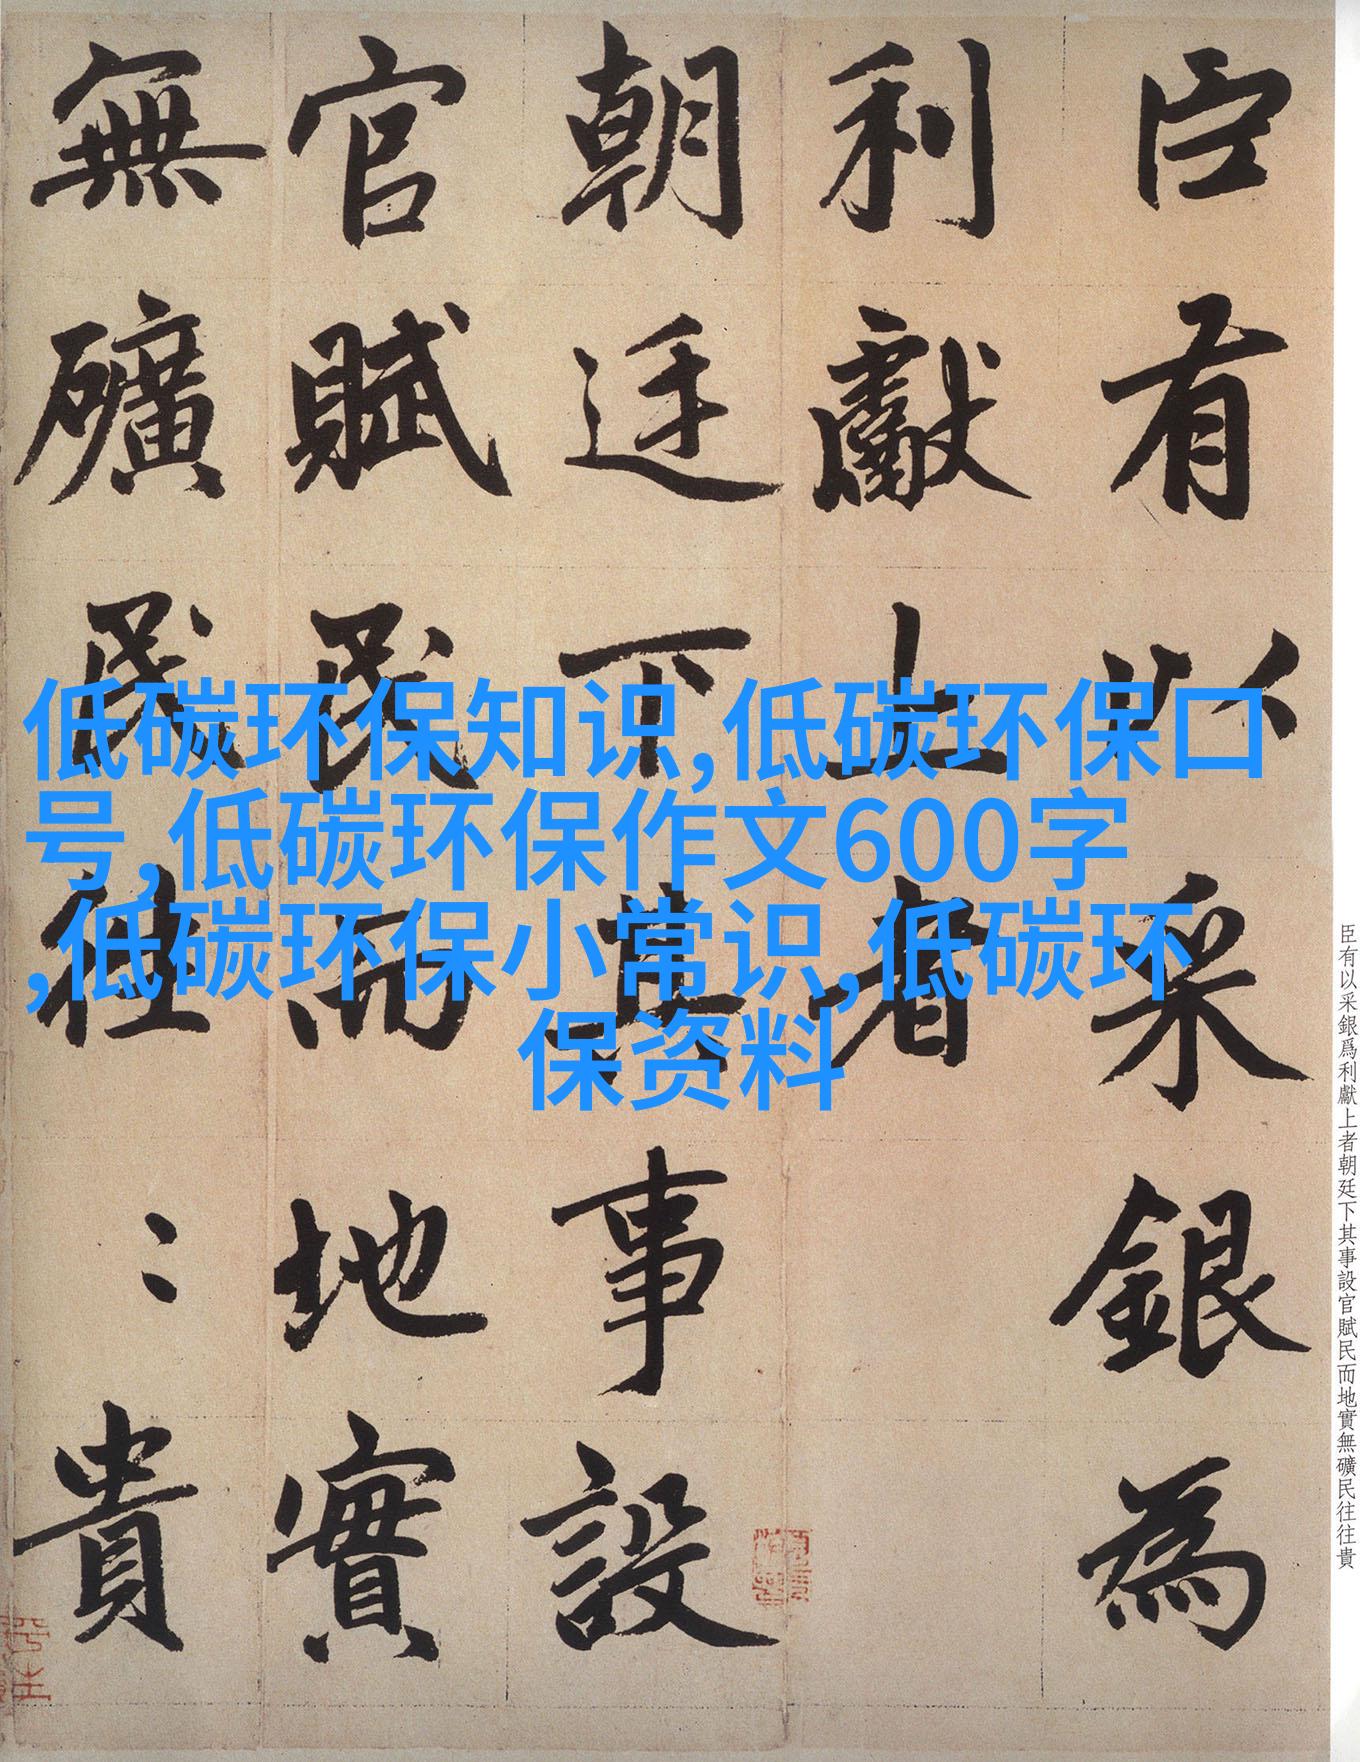 臣有以采銀為
利獻上者
朝廷下其事設
官賦民而地實
無礦民往〻貴
低碳环保知识,低碳环保口
号,低碳环保作文600字
,低碳环保小常识,低碳环
保资料
臣有以采銀爲利獻上者朝廷下其事設官賦民而地實無礦民往往貴